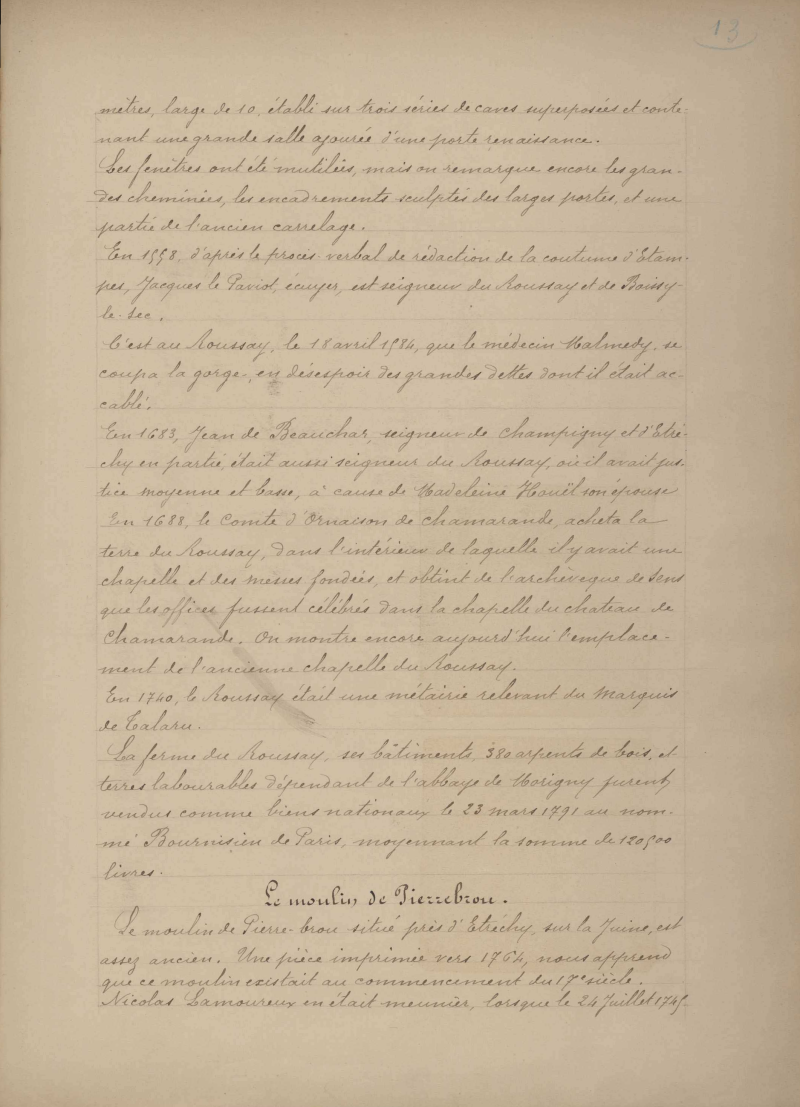 13
mètres, large de 10, établi sur trois séries de caves superposées et conte-
nant une grande salle ajourée d'une porte renaissance.
Les fenêtres ont été mutilées, mais on remarque encore les gran-
des cheminées, les encadrements sculptés des larges portes, et une
partie de l'ancien carrelage.
En 1558, d'après le procès-verbal de rédaction de la coutume d'Etam-
pes, Jacques le Paviot, écuyer, est seigneur du Roussay et de Boissy-
le-sec.
C'est au Roussay, le 18 avril 1584, que le médecin Malmedy, se
coupa la gorge, en désespoir des grandes dettes dont il était ac-
cablé.
En 1683, Jean de Beauchar, seigneur de Champigny et d'Etré-
chy en partie, était aussi seigneur du Roussay, où il avait jus-
tice moyenne et basse, à cause de Madeleine Houël son épouse
En 1688, le Comte d'Ornaison de Chamarande, acheta la
terre du Roussay, dans l'intérieur de laquelle il y avait une
chapelle et des messes fondées, et obtint de l'archevêque de Sens
que les offices fussent célébrés dans la chapelle du chateau de
Chamarande. On montre encore aujourd'hui l'emplace-
ment de l'ancienne chapelle du Roussay.
En 1740, le Roussay était une métairie relevant du Marquis
de Talaru.
La ferme du Roussay, ses bâtiments, 380 arpents de bois, et
terres labourables dépendant de l'abbaye de Morigny furent
vendus comme biens nationaux le 23 mars 1791 au nom-
mé Bournisien de Paris, moyennant la somme de 120500
livres.
Le moulin de Pierrebrou.
Le moulin de Pierre-brou situé près d'Etréchy, sur la Juine, est
assez ancien. Une pièce imprimée vers 1764, nous apprend
que ce moulin existait au commencement du 17e siècle.
Nicolas Lamoureux en était meunier, lorsque le 24 Juillet 1745